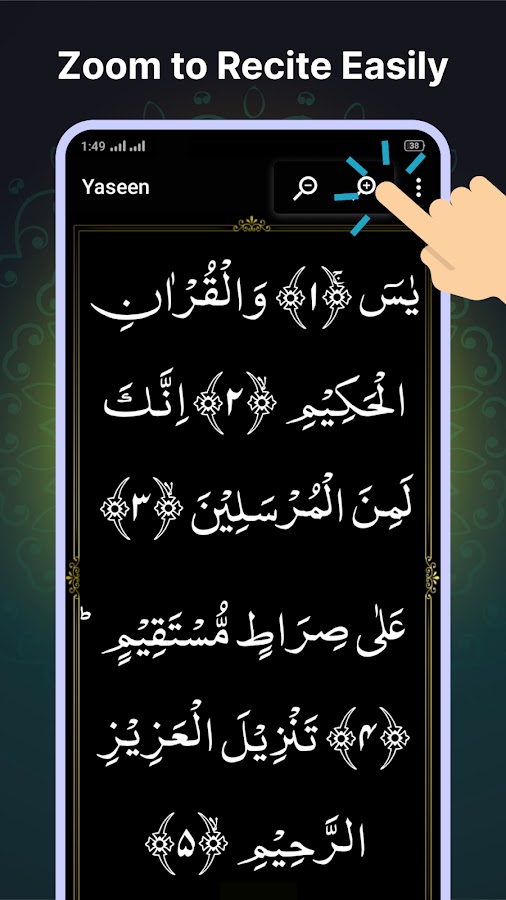 Zoom to Recite Easily
1:49 38
Yaseen
يٰسٓ ﴿۱﴾ۚ وَالْقُرْاٰنِ
الْحَكِيْمِ ﴿۲﴾ۙ اِنَّكَ
لَمِنَ الْمُرْسَلِيْنَ ﴿۳﴾ۙ
عَلٰى صِرَاطٍ مُّسْتَقِيْمٍ ؕ
﴿۴﴾ تَنْزِيْلَ الْعَزِيْزِ
الرَّحِيْمِ ﴿۵﴾ۙ